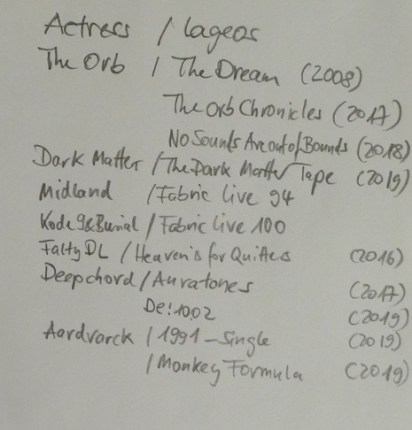 Actress / lageos
The Orb / The Dream (2008)
The Orb Chronicles (2017)
No Sounds Are out of Bounds (2018)
Dark Matter / The Dark Matter Tape (2019)
Midland / Fabric live 94
Kode 9 & Burial / Fabric live 100
Falty DL / Heaven is for Quitters (2016)
Deepchord / Auratones (2017)
De:10.02 (2019)
Aardvarck / 1991 - Single (2019)
/ Monkey Formula (2019)